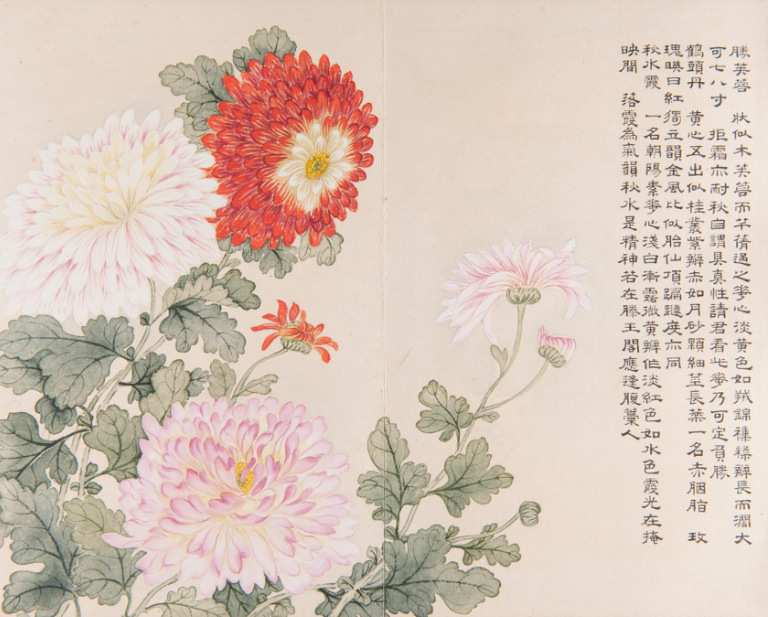 勝芙蓉　狀似木芙蓉而芊蒨過之蕚心淡黃色如羢錦襍糅瓣長而濶大
可七八寸　拒霜亦耐秋自謂具真性請君看此蕚乃可定負勝
鶴頭丹　黃心五出似桂叢紫瓣赤如丹砂顆細莖長葉一名赤胭脂　玫
瑰映日紅獨立韻金風比似胎仙頂蹁躚度亦同
秋水霞　一名朝陽素蕚心淺白漸露微黃瓣作淡紅色如水色霞光在掩
映間　落霞為氣韻秋水是精神若在滕王閣應逢腹藁人